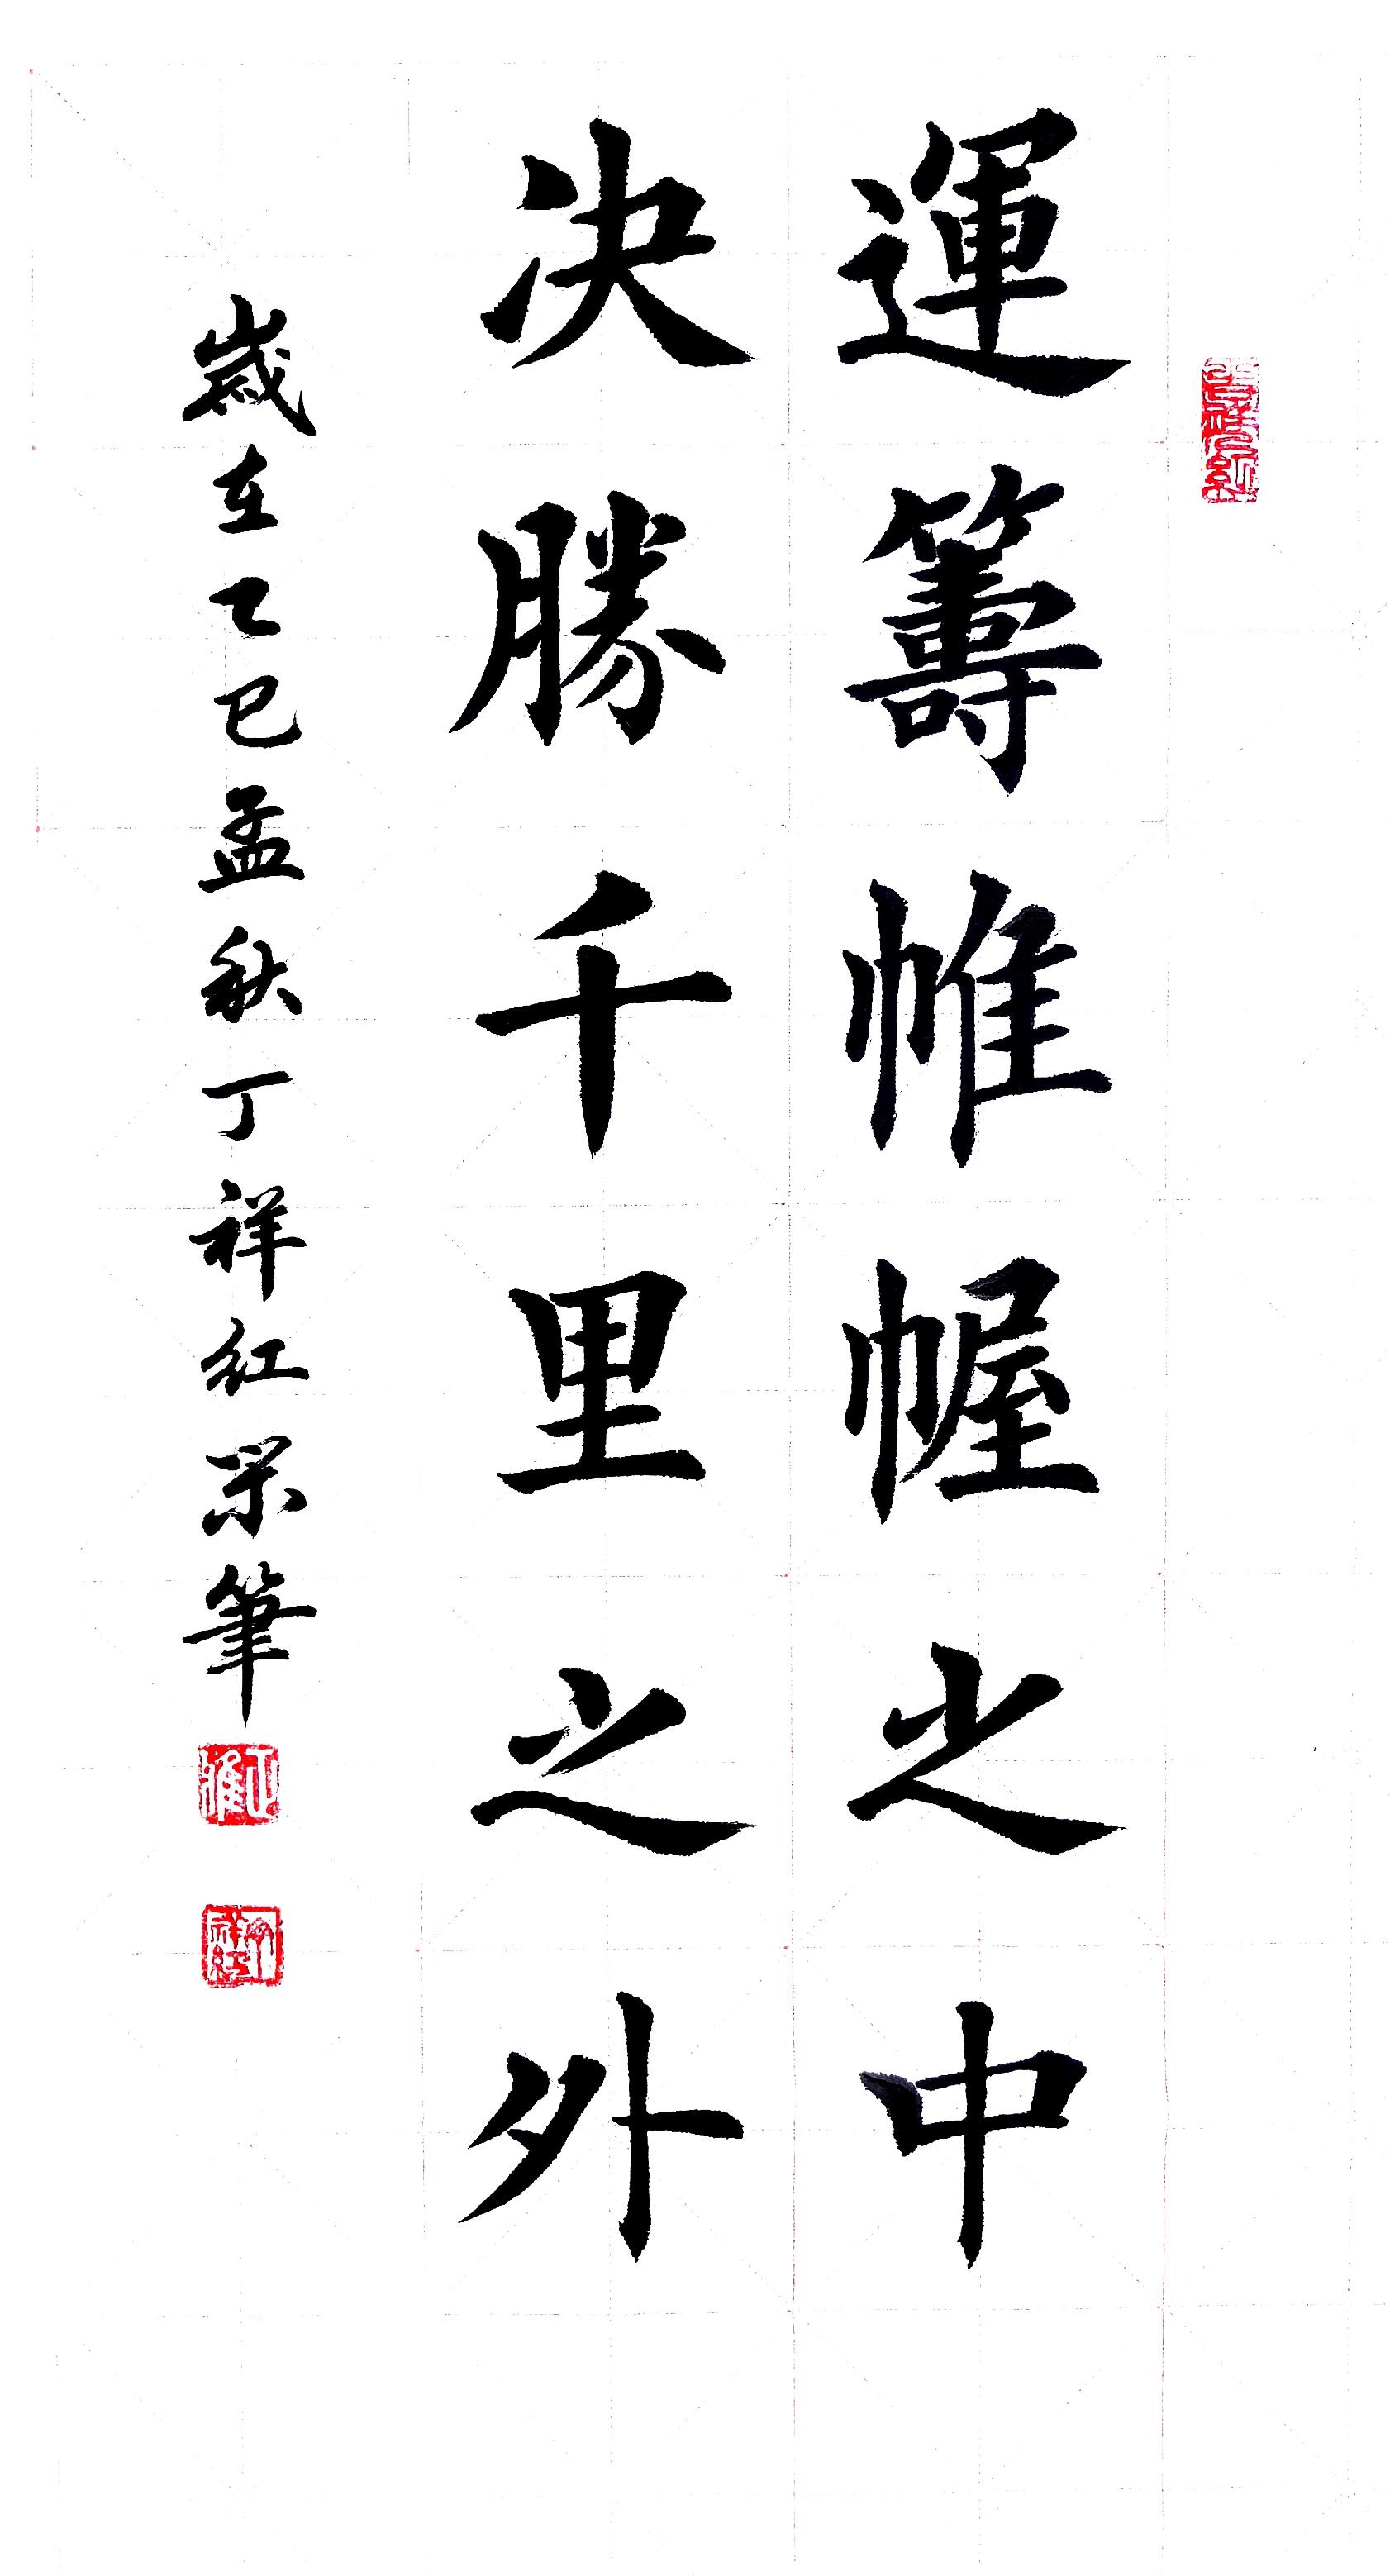 運籌帷幄之中
决勝千里之外
歲在乙巳孟秋丁祥红 筆